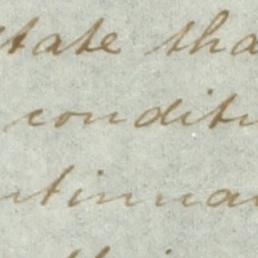 state tha
condit
ntinua